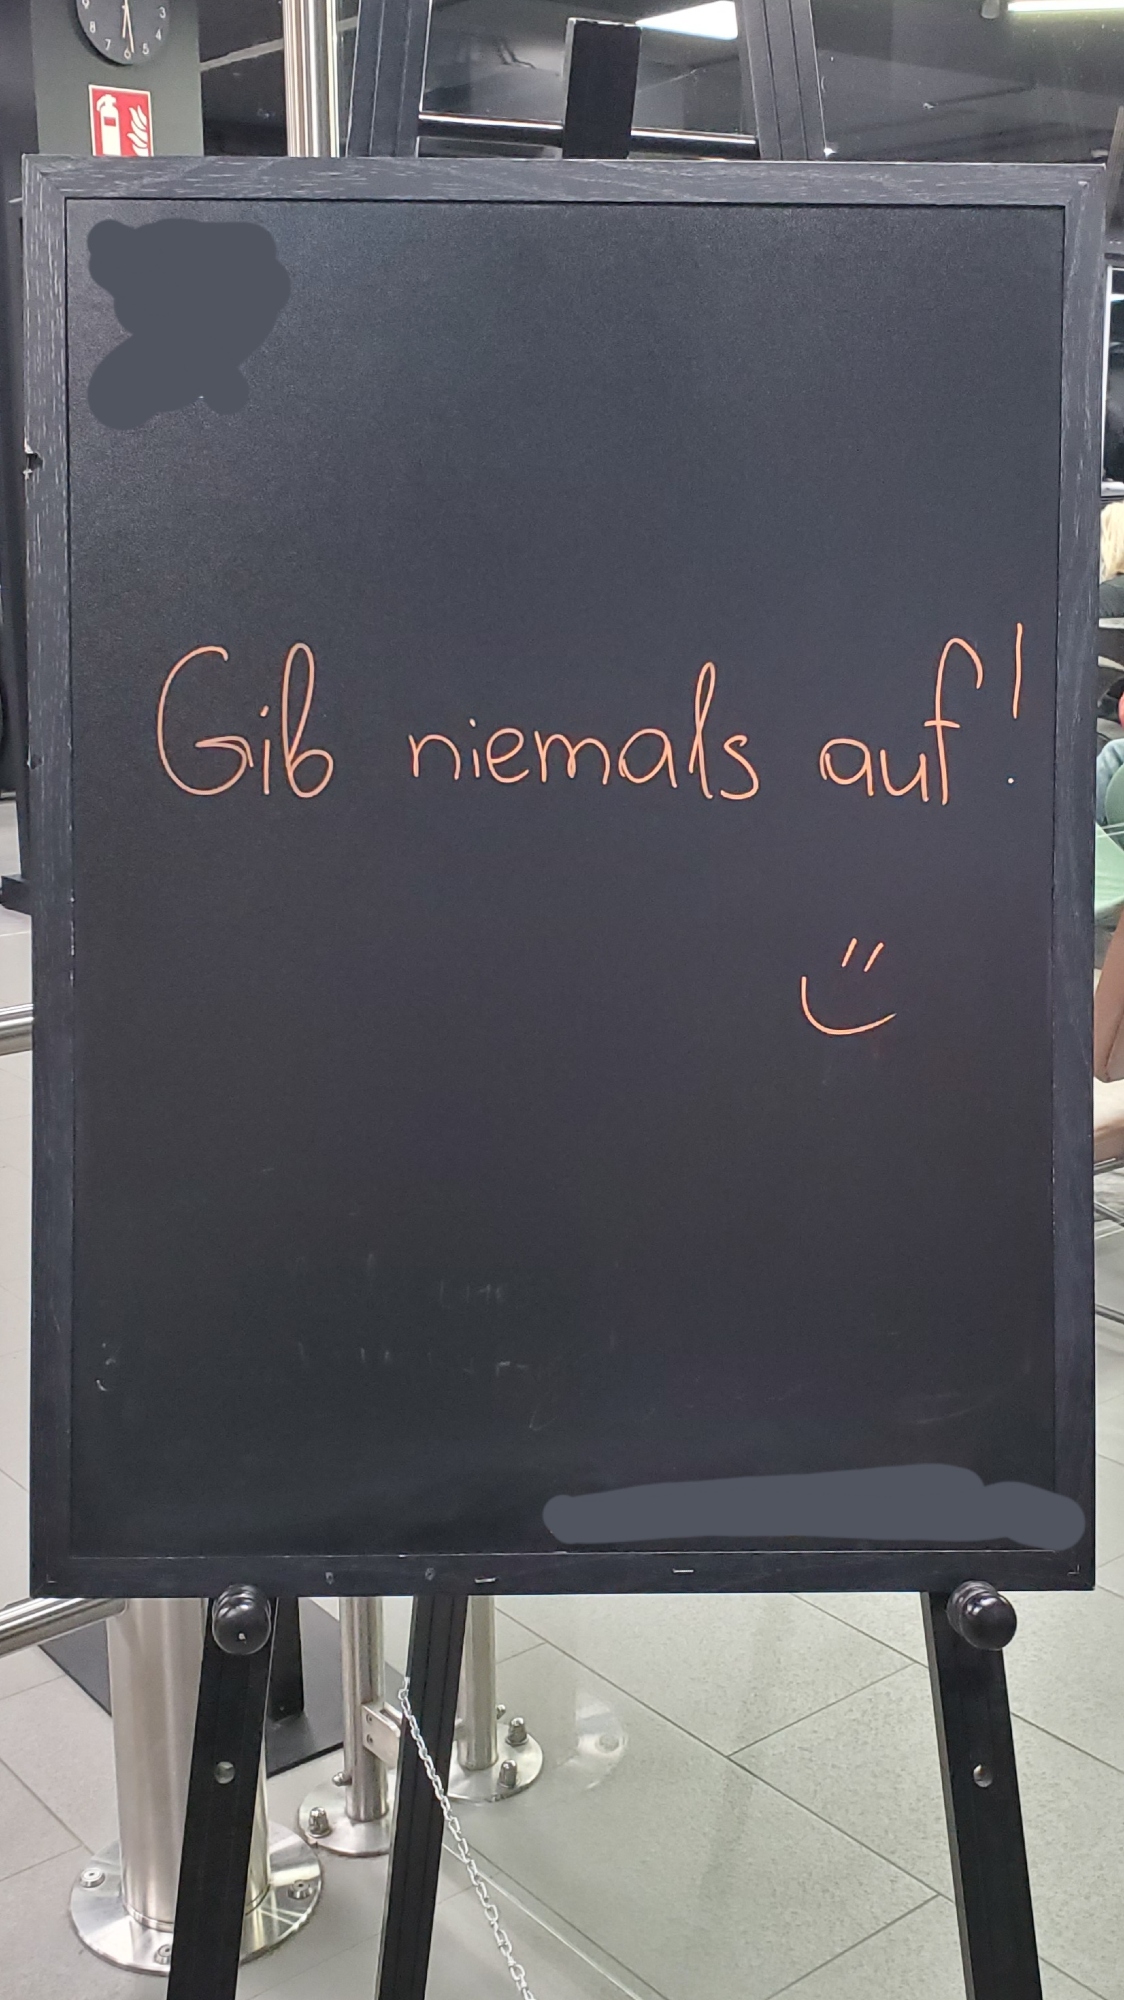 Gib niemals auf!